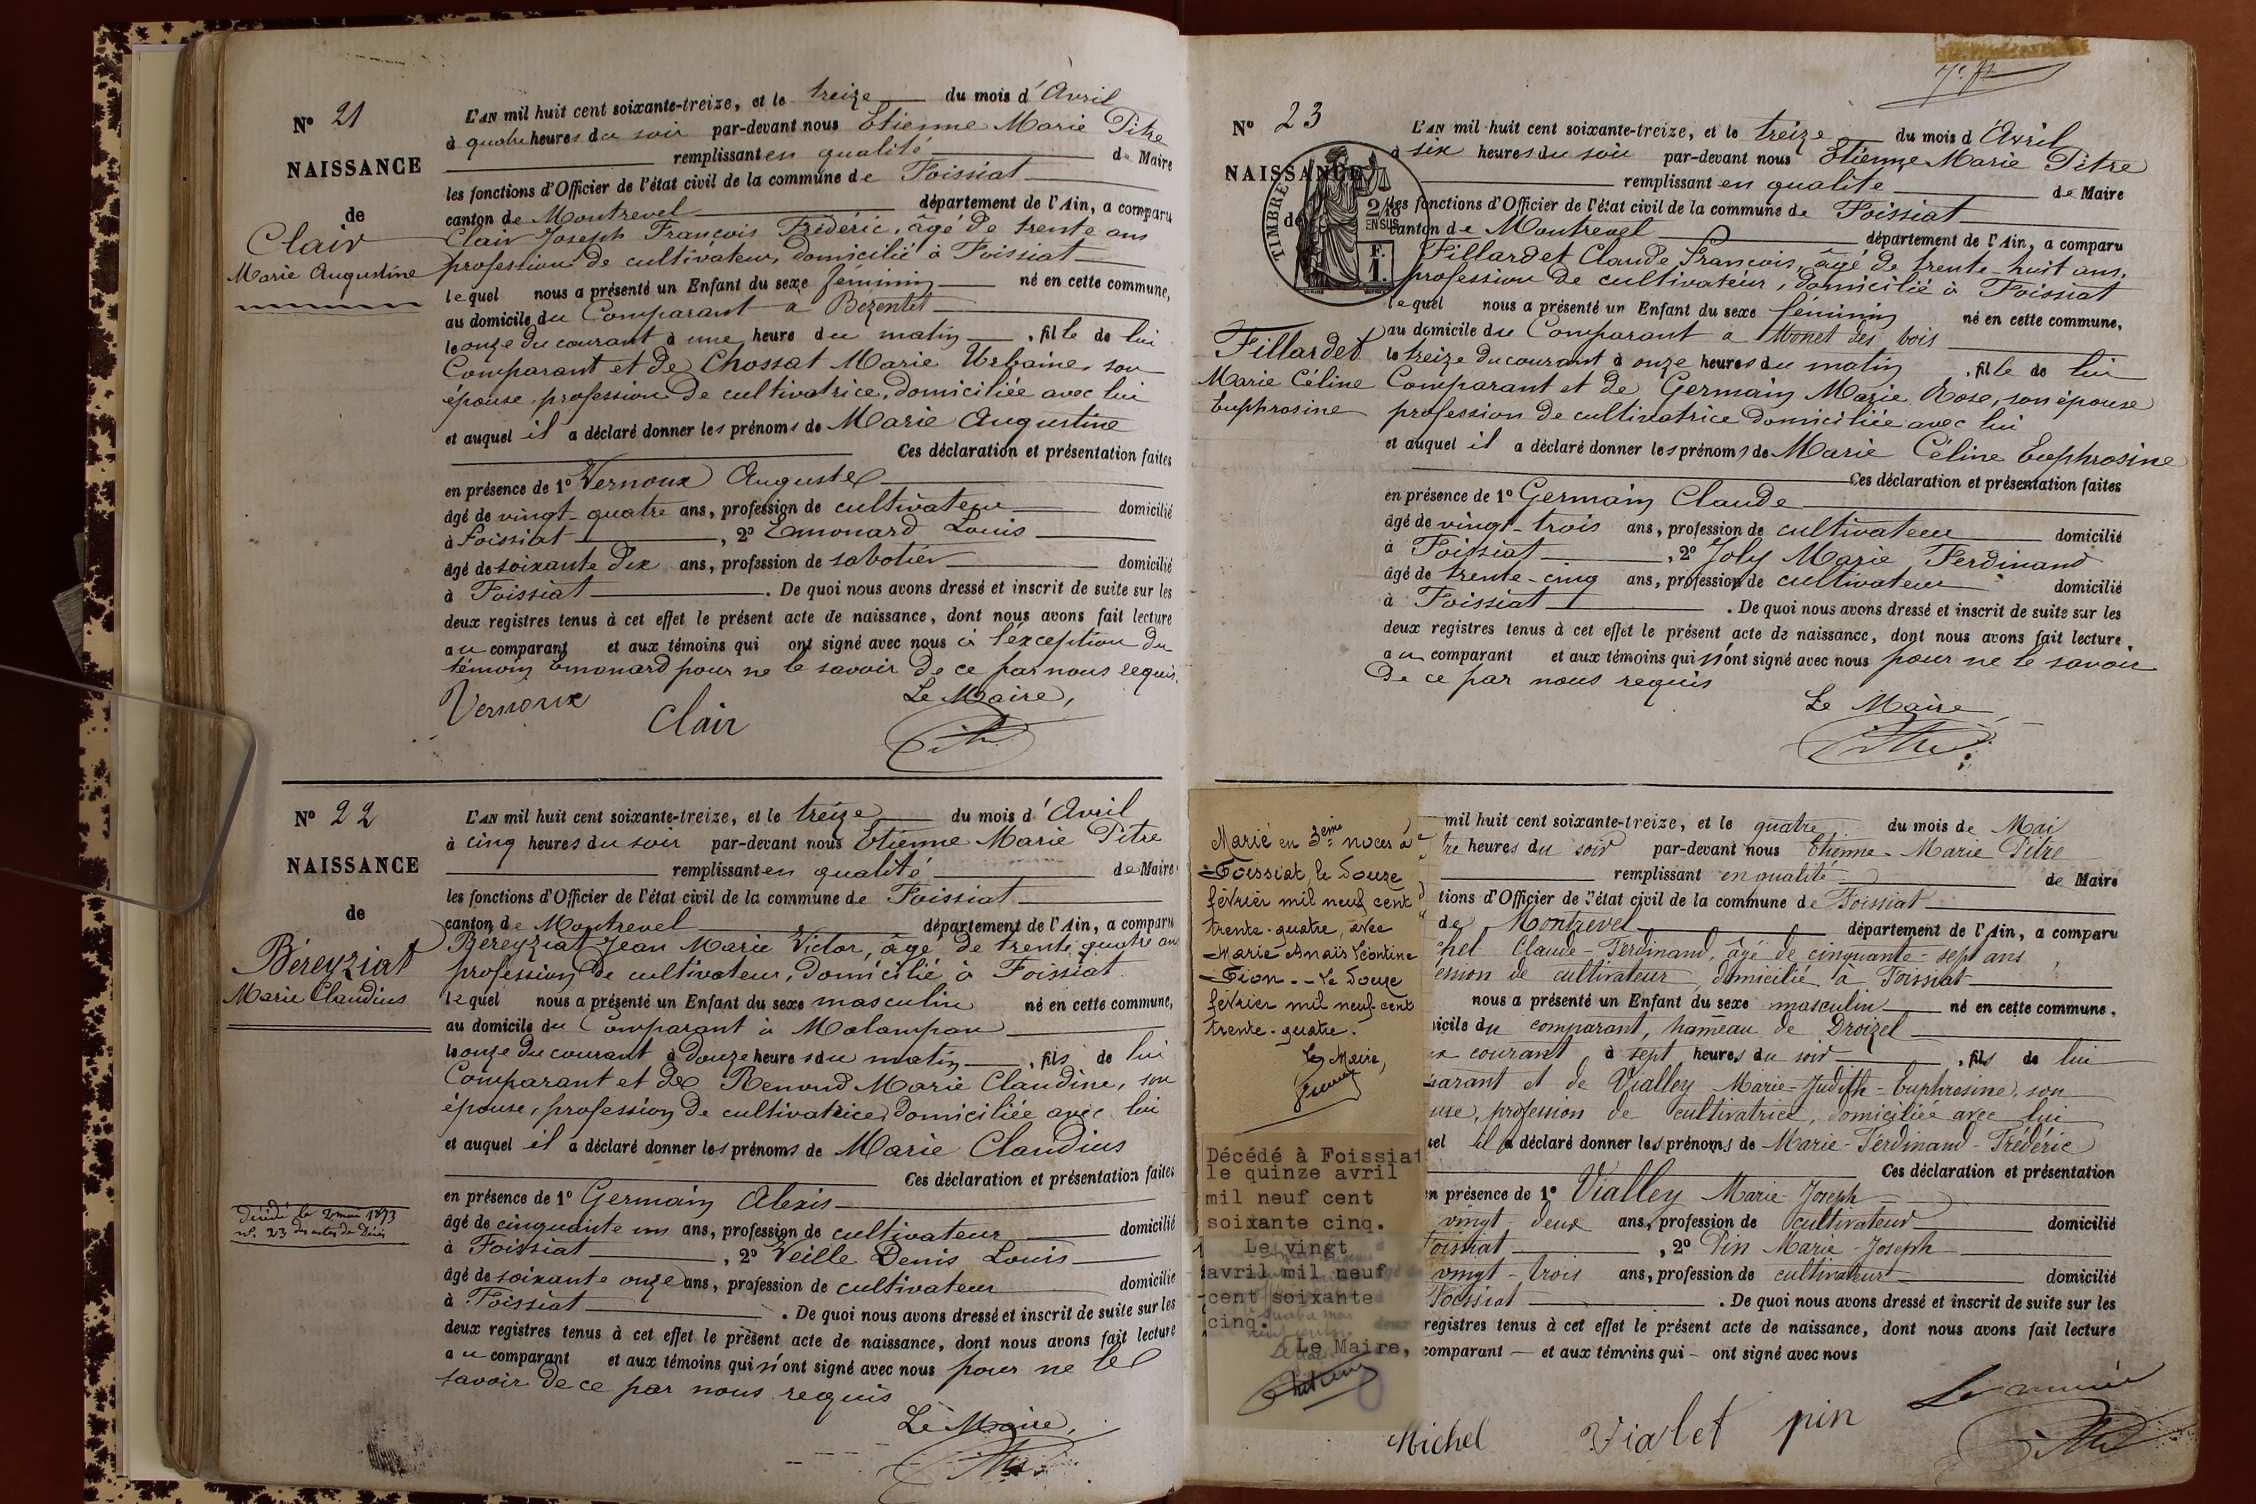 N° 21
NAISSANCE
de
Clair
Marie Augustine
L'AN mil huit cent soixante-treize, et le treize du mois d'Avril
à quatre heures du soir par-devant nous Etienne Marie Pitre
remplissant en qualité de Maire
les fonctions d'Officier de l'état civil de la commune de Foissiat
canton de Montrevel département de l'Ain, a comparu
Clair Joseph François Frédéric, âgé de trente ans
profession de cultivateur, domicilié à Foissiat
lequel nous a présenté un Enfant du sexe féminin né en cette commune,
au domicile du Comparant à Bezentet
le onze du courant à une heure du matin, fille de lui
Comparant et de Chossat Marie Urbaine, son
épouse, profession de cultivatrice, domiciliée avec lui
et auquel il a déclaré donner les prénoms de Marie Augustine
Ces déclaration et présentation faites
en présence de 1° Vernoux Auguste
âgé de vingt-quatre ans, profession de cultivateur domicilié
à Foissiat, 2° Emonard Louis
âgé de soixante dix ans, profession de sabotier domicilié
à Foissiat. De quoi nous avons dressé et inscrit de suite sur les
deux registres tenus à cet effet le présent acte de naissance, dont nous avons fait lecture
au comparant et aux témoins qui ont signé avec nous à l'exception du
témoin Emonard pour ne le savoir de ce par nous requis.
Vernoux Clair Le Maire,
Pitre
N° 22
NAISSANCE
de
Béreyziat
Marie Claudius
Décédé le 2 mai 1873
n° 23 des actes de Décès
L'AN mil huit cent soixante-treize, et le treize du mois d'Avril
à cinq heures du soir par-devant nous Etienne Marie Pitre
remplissant en qualité de Maire
les fonctions d'Officier de l'état civil de la commune de Foissiat
canton de Montrevel département de l'Ain, a comparu
Béreyziat Jean Marie Victor, âgé de trente quatre ans
profession de cultivateur, domicilié à Foissiat
lequel nous a présenté un Enfant du sexe masculin né en cette commune,
au domicile du Comparant à Malampan
le onze du courant à douze heures du matin, fils de lui
Comparant et de Renoud Marie Claudine, son
épouse, profession de cultivatrice, domiciliée avec lui
et auquel il a déclaré donner les prénoms de Marie Claudius
Ces déclaration et présentation faites
en présence de 1° Germain Alexis
âgé de cinquante un ans, profession de cultivateur domicilié
à Foissiat, 2° Veille Denis Louis
âgé de soixante onze ans, profession de cultivateur domicilié
à Foissiat. De quoi nous avons dressé et inscrit de suite sur les
deux registres tenus à cet effet le présent acte de naissance, dont nous avons fait lecture
au comparant et aux témoins qui n'ont signé avec nous pour ne le
savoir de ce par nous requis
Le Maire,
Pitre
N° 23
NAISSANCE
de
TIMBRE
2/10
EN SUS
F.
1.
Fillardet
Marie Céline
Euphrosine
L'AN mil huit cent soixante-treize, et le treize du mois d'Avril
à six heures du soir par-devant nous Etienne Marie Pitre
remplissant en qualité de Maire
les fonctions d'Officier de l'état civil de la commune de Foissiat
canton de Montrevel département de l'Ain, a comparu
Fillardet Claude François, âgé de trente-huit ans,
profession de cultivateur, domicilié à Foissiat
lequel nous a présenté un Enfant du sexe féminin né en cette commune,
au domicile du Comparant à Monet des bois
le treize du courant à onze heures du matin, fille de lui
Comparant et de Germain Marie Rose, son épouse
profession de cultivatrice domiciliée avec lui
et auquel il a déclaré donner les prénoms de Marie Céline Euphrosine
Ces déclaration et présentation faites
en présence de 1° Germain Claude
âgé de vingt-trois ans, profession de cultivateur domicilié
à Foissiat, 2° Joly Marie Ferdinand
âgé de trente-cinq ans, profession de cultivateur domicilié
à Foissiat. De quoi nous avons dressé et inscrit de suite sur les
deux registres tenus à cet effet le présent acte de naissance, dont nous avons fait lecture.
au comparant et aux témoins qui n'ont signé avec nous pour ne le savoir
De ce par nous requis
Le Maire
Pitre
Marié en 3ème noces à
Foissiat, le douze
février mil neuf cent
trente-quatre, avec
Marie Anaïs Léontine
Pion. - Le douze
février mil neuf cent
trente-quatre.
Le Maire,
Décédé à Foissiat
le quinze avril
mil neuf cent
soixante cinq.
Le vingt
avril mil neuf
cent soixante
cinq.
Le Maire,
mil huit cent soixante-treize, et le quatre du mois de Mai
tre heures du soir par-devant nous Etienne-Marie Pitre
remplissant en qualité de Maire
tions d'Officier de l'état civil de la commune de Foissiat
de Montrevel département de l'Ain, a comparu
chel Claude-Ferdinand, âgé de cinquante-sept ans
ession de cultivateur, domicilié à Foissiat
nous a présenté un Enfant du sexe masculin né en cette commune.
icile du comparant, hameau de Droizel
courant à sept heures du soir, fils de lui
parant et de Vialley Marie-Judith-Euphrosine, son
use, profession de cultivatrice, domiciliée avec lui
uel il a déclaré donner les prénoms de Marie-Ferdinand-Frédéric
Ces déclaration et présentation
en présence de 1° Vialley Marie-Joseph
vingt-deux ans, profession de cultivateur domicilié
Foissiat, 2° Pin Marie-Joseph
vingt-trois ans, profession de cultivateur domicilié
Foissiat. De quoi nous avons dressé et inscrit de suite sur les
registres tenus à cet effet le présent acte de naissance, dont nous avons fait lecture
comparant — et aux témoins qui — ont signé avec nous
Michel Vialet pin Le maire
Pitre